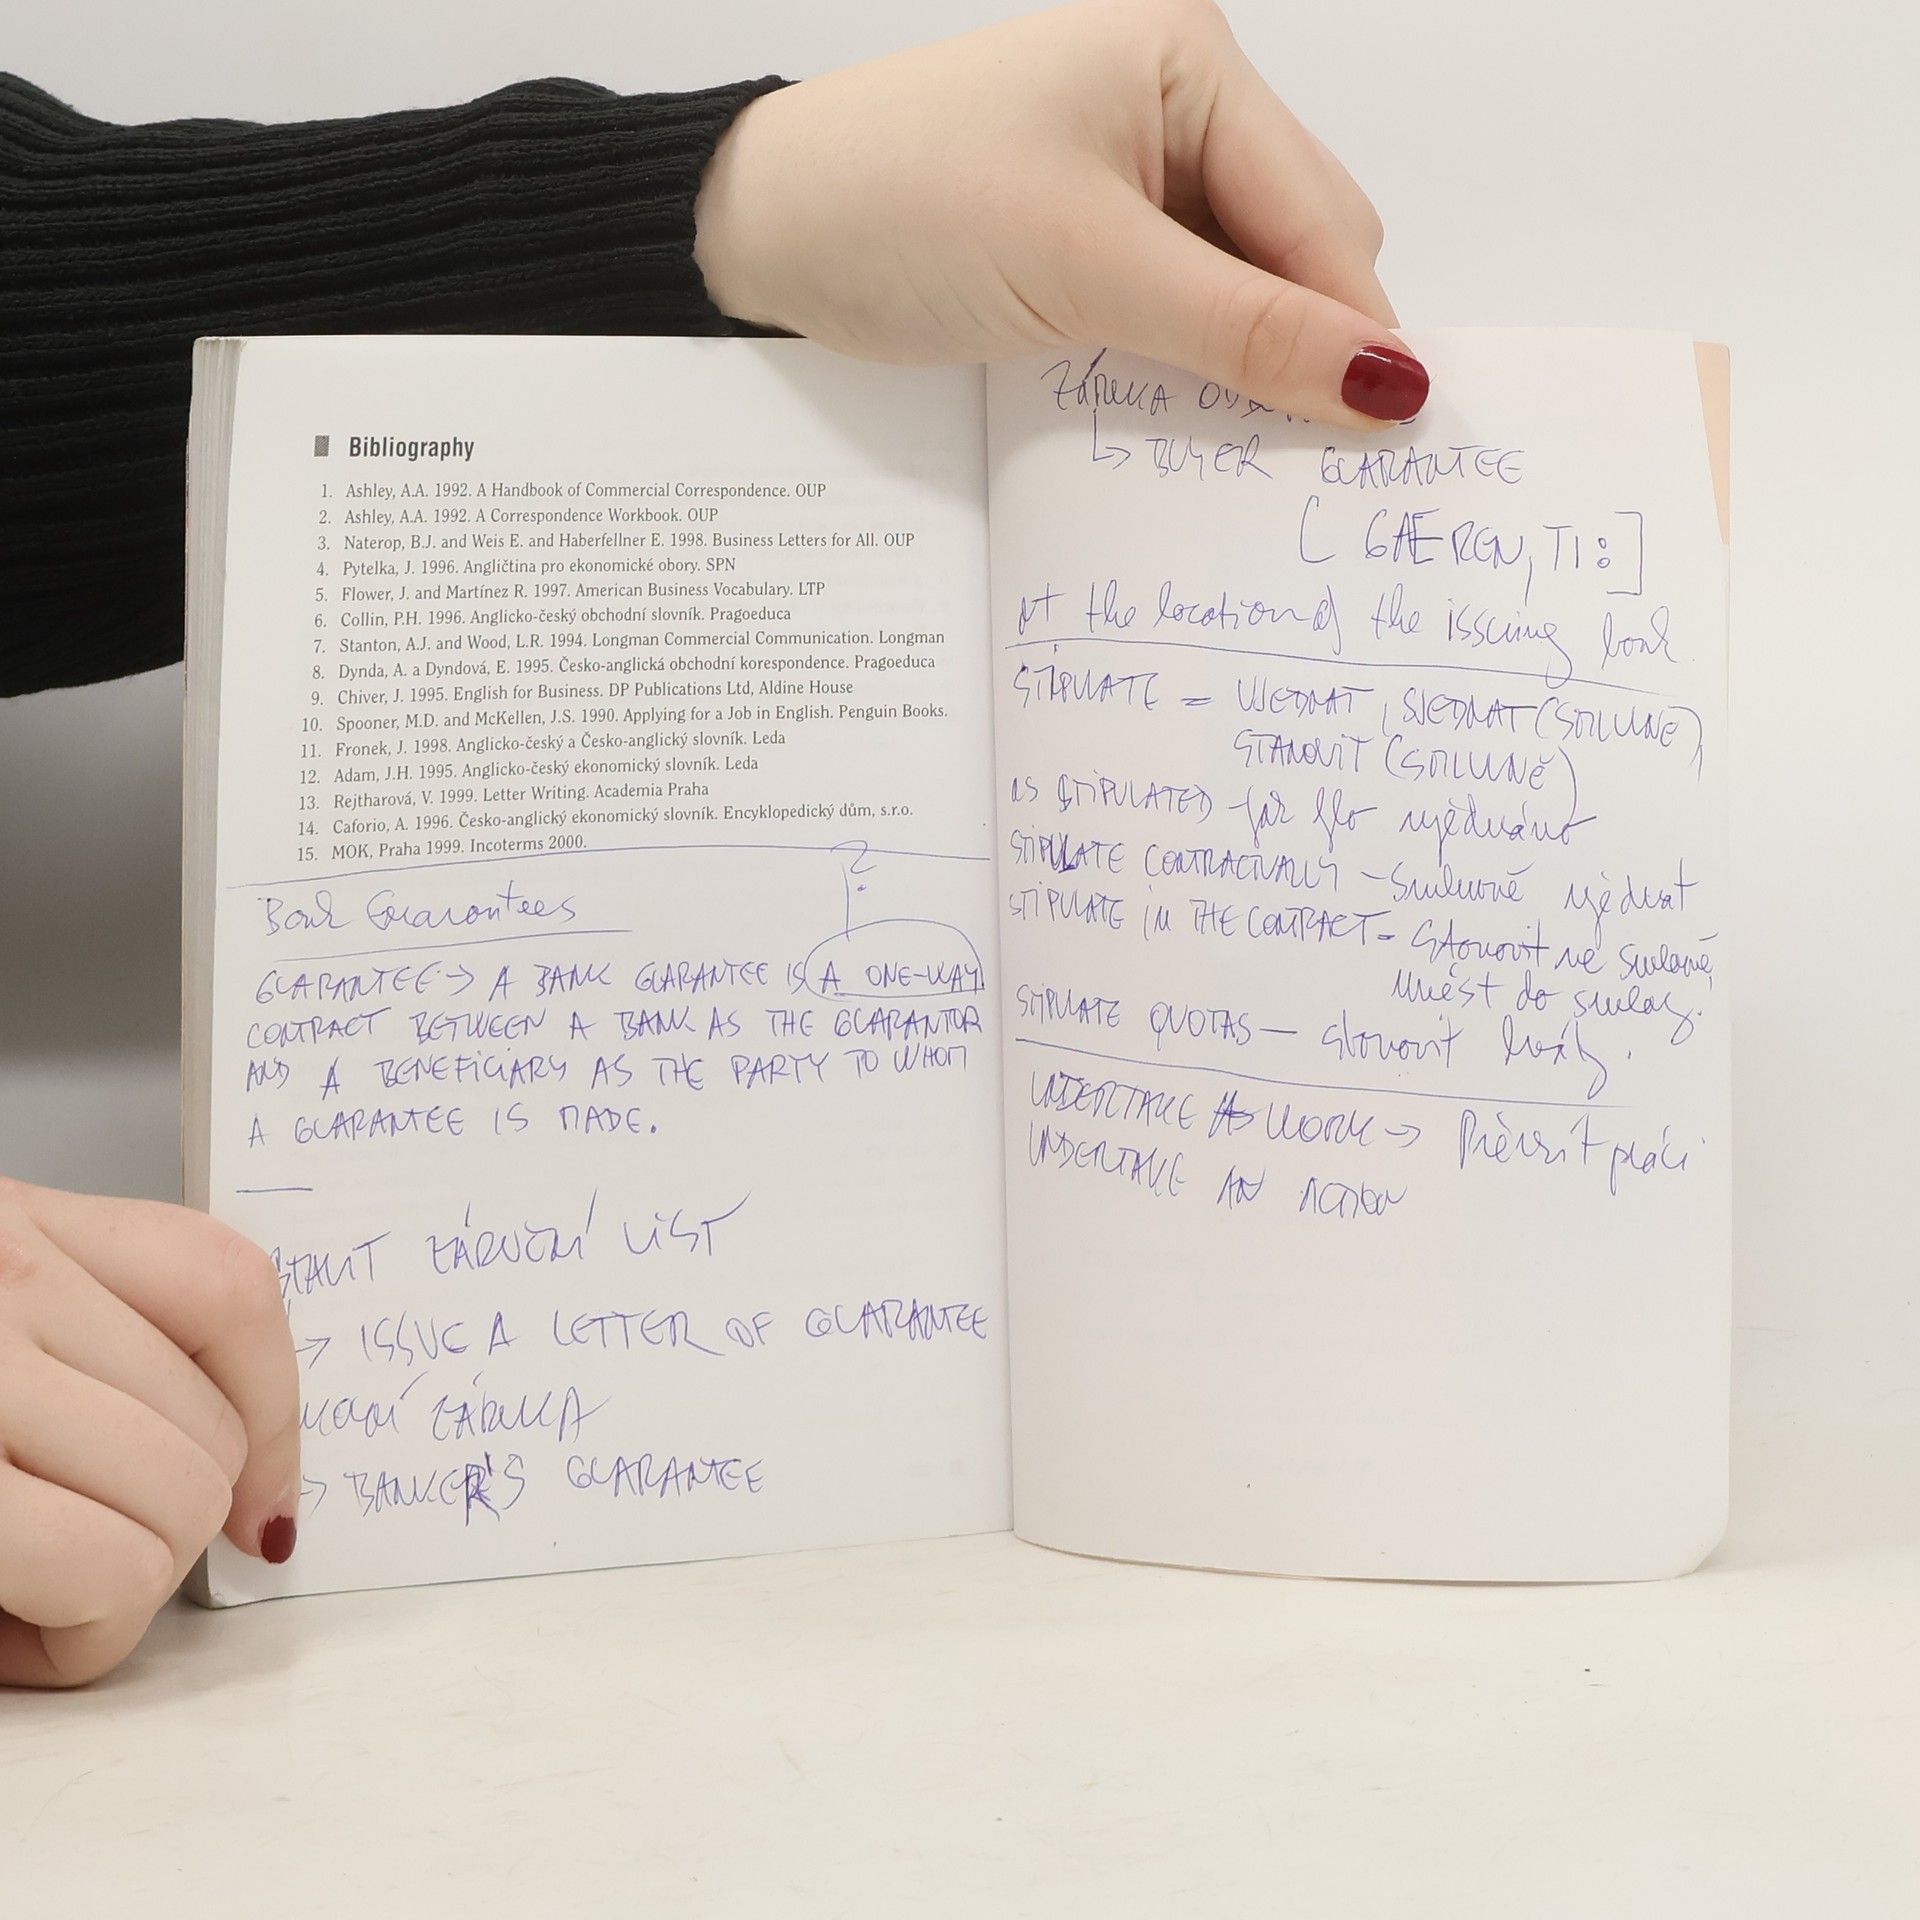 Bibliography
1. Ashley, A.A. 1992. A Handbook of Commercial Correspondence. OUP
2. Ashley, A.A. 1992. A Correspondence Workbook. OUP
3. Naterop, B.J. and Weis E. and Haberfellner E. 1998. Business Letters for All. OUP
4. Pytelka, J. 1996. Angličtina pro ekonomické obory. SPN
5. Flower, J. and Martínez R. 1997. American Business Vocabulary. LTP
6. Collin, P.H. 1996. Anglicko-český obchodní slovník. Pragoeduca
7. Stanton, A.J. and Wood, L.R. 1994. Longman Commercial Communication. Longman
8. Dynda, A. a Dyndová, E. 1995. Česko-anglická obchodní korespondence. Pragoeduca
9. Chiver, J. 1995. English for Business. DP Publications Ltd, Aldine House
10. Spooner, M.D. and McKellen, J.S. 1990. Applying for a Job in English. Penguin Books.
11. Fronek, J. 1998. Anglicko-český a Česko-anglický slovník. Leda
12. Adam, J.H. 1995. Anglicko-český ekonomický slovník. Leda
13. Rejtharová, V. 1999. Letter Writing. Academia Praha
14. Caforio, A. 1996. Česko-anglický ekonomický slovník. Encyklopedický dům, s.r.o.
15. MOK, Praha 1999. Incoterms 2000.
Bank Guarantees
GUARANTEE → A BANK GUARANTEE IS A ONE-WAY
CONTRACT BETWEEN A BANK AS THE GUARANTOR
AND A BENEFICIARY AS THE PARTY TO WHOM
A GUARANTEE IS MADE.
ZÁRUČNÍ LIST
→ ISSUE A LETTER OF GUARANTEE
ZÁRUKA
→ BANKER'S GUARANTEE
ZÁRUKA
↳ BUYER GUARANTEE
at the location of the issuing bank
STIPULATE = UJEDNAT, SJEDNAT (SMLUVNĚ)
STANOVIT (SMLUVNĚ)
AS STIPULATED - jak bylo ujednáno
STIPULATE CONTRACTUALLY - Smluvně ujednat
STIPULATE IN THE CONTRACT - Stanovit ve smlouvě,
Vnést do smlouvy.
STIPULATE QUOTAS - stanovit kvóty.
UNDERTAKE WORK → Převzít práci
UNDERTAKE AN ACTION